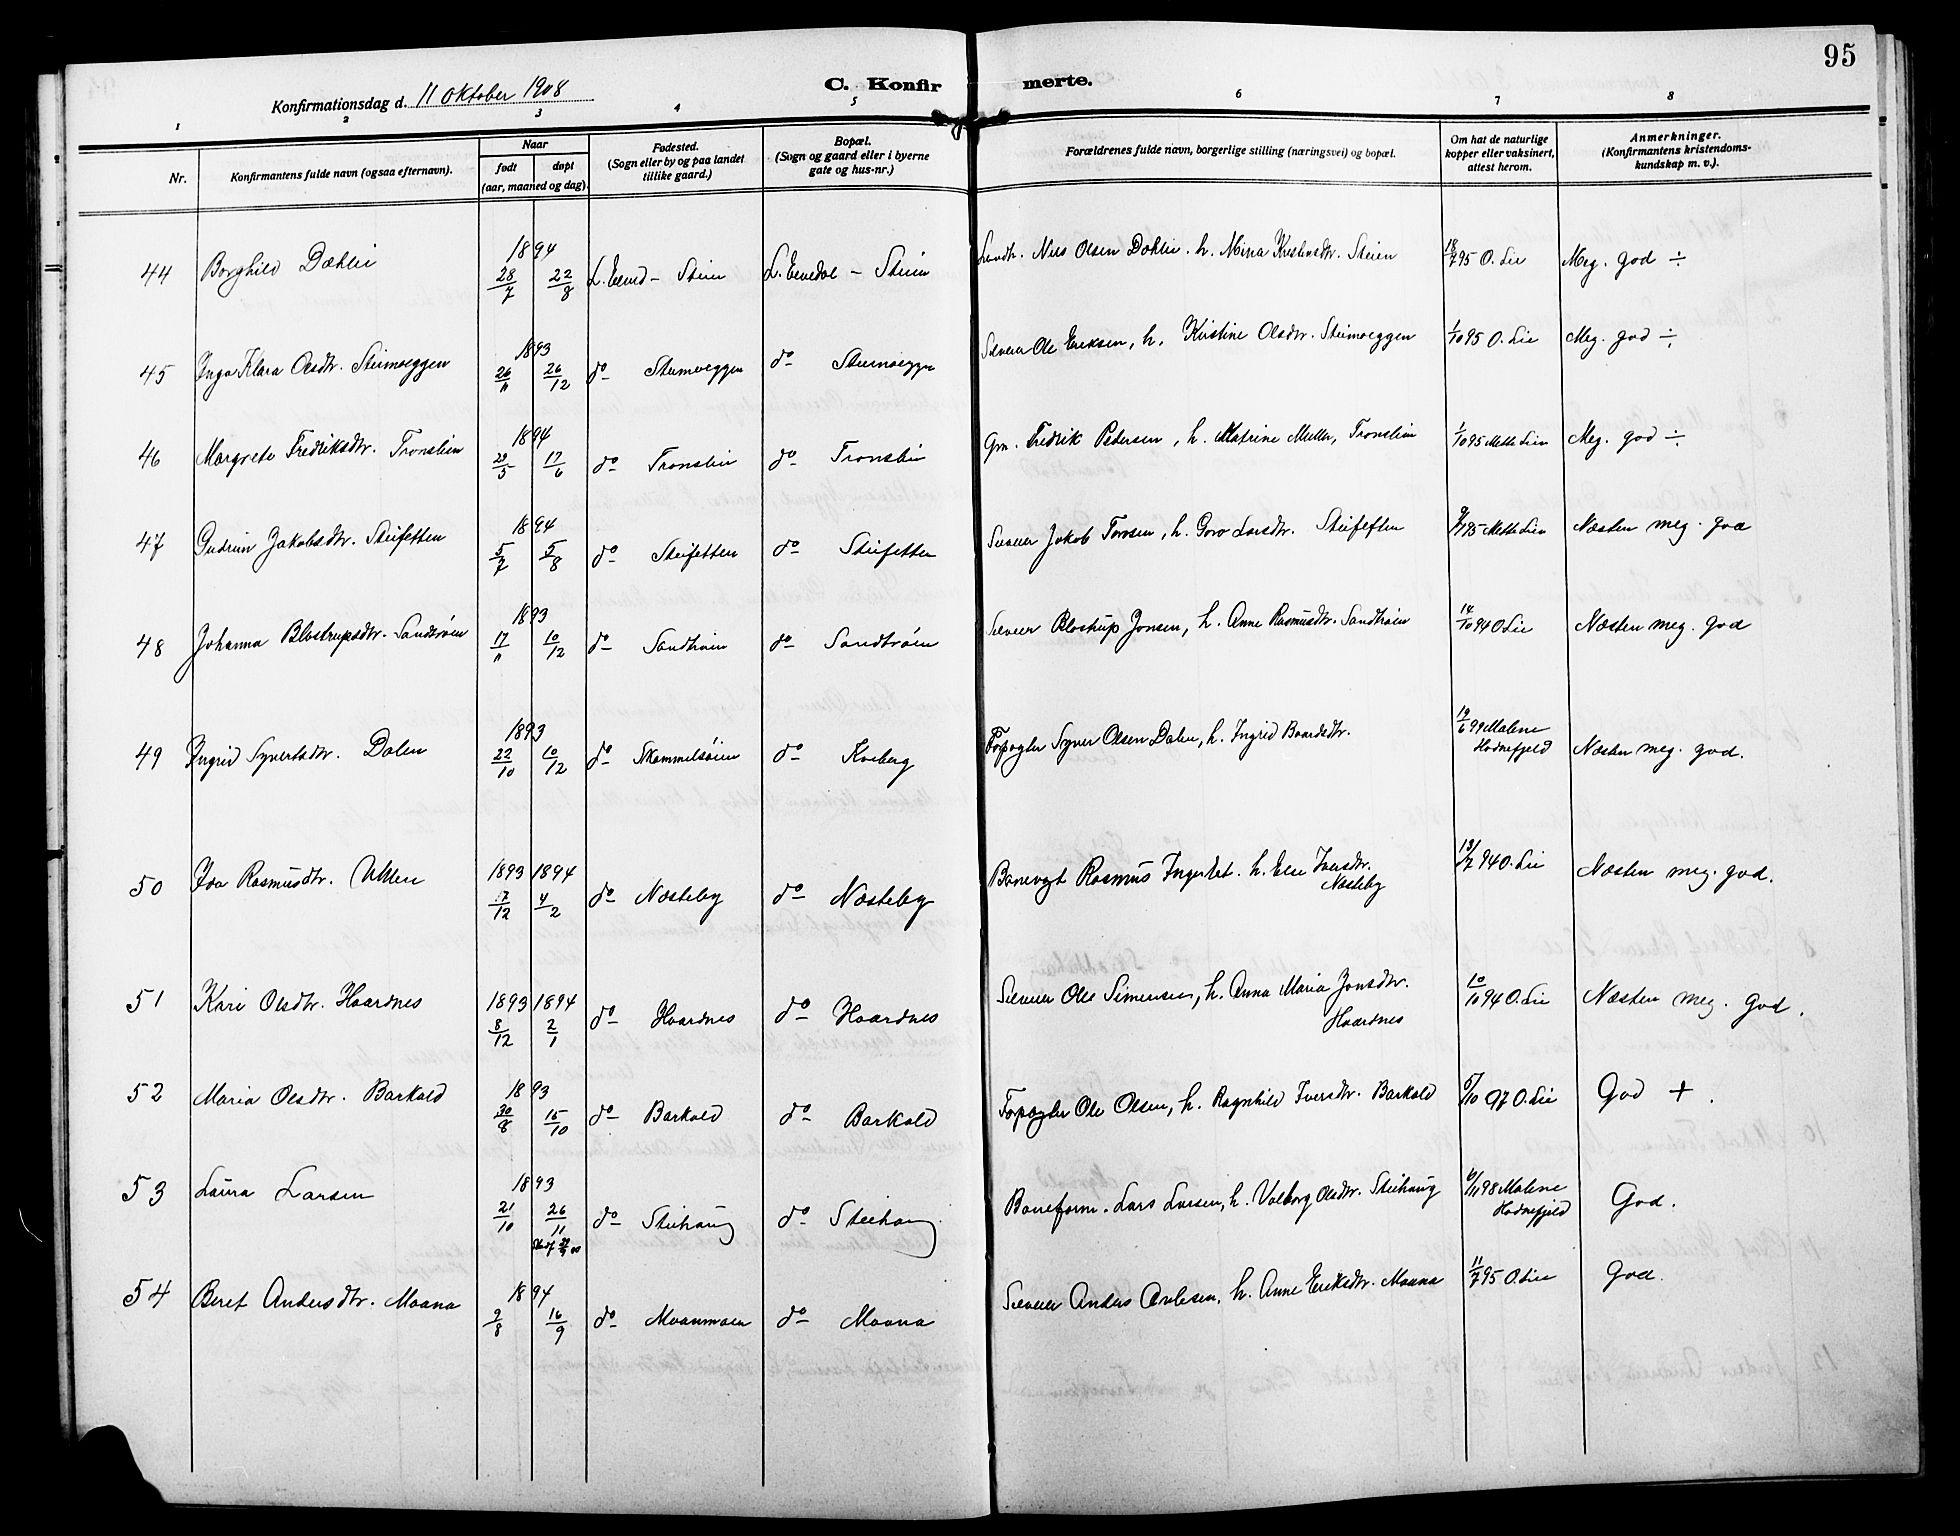 95
Konfirmationsdag d. 11 Oktober 1908
C. Konfirmerte.
1 2 3 4 5 6 7 8
Nr.
Konfirmantens fulde navn (ogsaa efternavn).
Naar
født
døpt
(aar, maaned og dag)
Fødested.
(Sogn eller by og paa landet
tillike gaard.)
Bopæl.
(Sogn og gaard eller i byerne
gate og hus-nr.)
Forældrenes fulde navn, borgerlige stilling (næringsvei) og bopæl.
Om hat de naturlige
kopper eller vaksinert,
attest herom.
Anmerkninger.
(Konfirmantens kristendoms-
kundskap m. v.).
1894
44 Borghild Dæhlie 28/7 22/8 L. Elved - Steien L. Elvedal - Steien Landh. Nils Olsen Dæhlie. h. Mina Kristensdtr. Steien 18/7 95 O. Lie Meg. god ÷
1893
45 Inga Klara Olsdtr. Steimoeggen 26/11 26/12 do Steimoeggen do Steimoeggen Selveier Ole Eriksen, h. Kristine Olsdtr. Steimoeggen 1/10 95 O. Lie Meg. god ÷
1894
46 Margrete Fredriksdtr. Tronslien 29/5 17/6 do Tronslien do Tronslien Grn. Fredrik Pedersen, h. Matrine Muller, Tronslien 1/10 95 Mette Lien Meg. god ÷
1894
47 Gudrun Jakobsdtr. Steifetten 5/7 5/8 do Steifetten do Steifetten Selveier Jakob Torosen, h. Goro Larsdtr. Steifetten 95 Mette Lien Næsten meg. god
1893
48 Johanna Blostrupsdtr. Sandtrøen 17/11 10/12 do Sandtrøen do Sandtrøen Selveier Blostrup Jonsen, h. Anne Rasmusdtr. Sandtrøen 14/10 94 O. Lie Næsten meg. god
1893
49 Ingrid Syversdtr. Dalen 22/10 10/12 do Skammelsøien do Kveberg Forpagter Syver Olsen Dalen, h. Ingrid Baardsdtr. 19/6 99 Malene
Hodnefjeld Næsten meg. god.
1893 1894
50 Ida Rasmusdtr. 7/12 4/2 do Næsteby do Næsteby Banevogt Rasmus h. Eli Iversdtr.
Næsteby 13/7 94 O. Lie Næsten meg. god.
1893 1894
51 Kari Olsdtr. Haardnes 8/12 2/1 do Haardnes do Haardnes Selveier Ole Simensen, h. Anna Maria Jonsdtr.
Haardnes 10/10 94 O. Lie Næsten meg. god.
1893
52 Maria Olsdtr. Barkald 30/8 15/10 do Barkald do Barkald Forpagter Ole Olsen, h. Ragnhild Iversdtr. Barkald 6/10 97 O. Lie God +.
1893
53 Laura Larsen 21/10 26/11 do Steihaug do Steihaug. Baneform. Lars Larsen, h. Valborg Olsdtr. Steihaug 98 Malene
Hodnefjeld God.
1894
54 Beret Andersdtr. Moana 9/8 16/9 do Moanmoen do Moana Selveier Anders h. Anne Eriksdtr. Moana 11/7 95 O. Lie God.